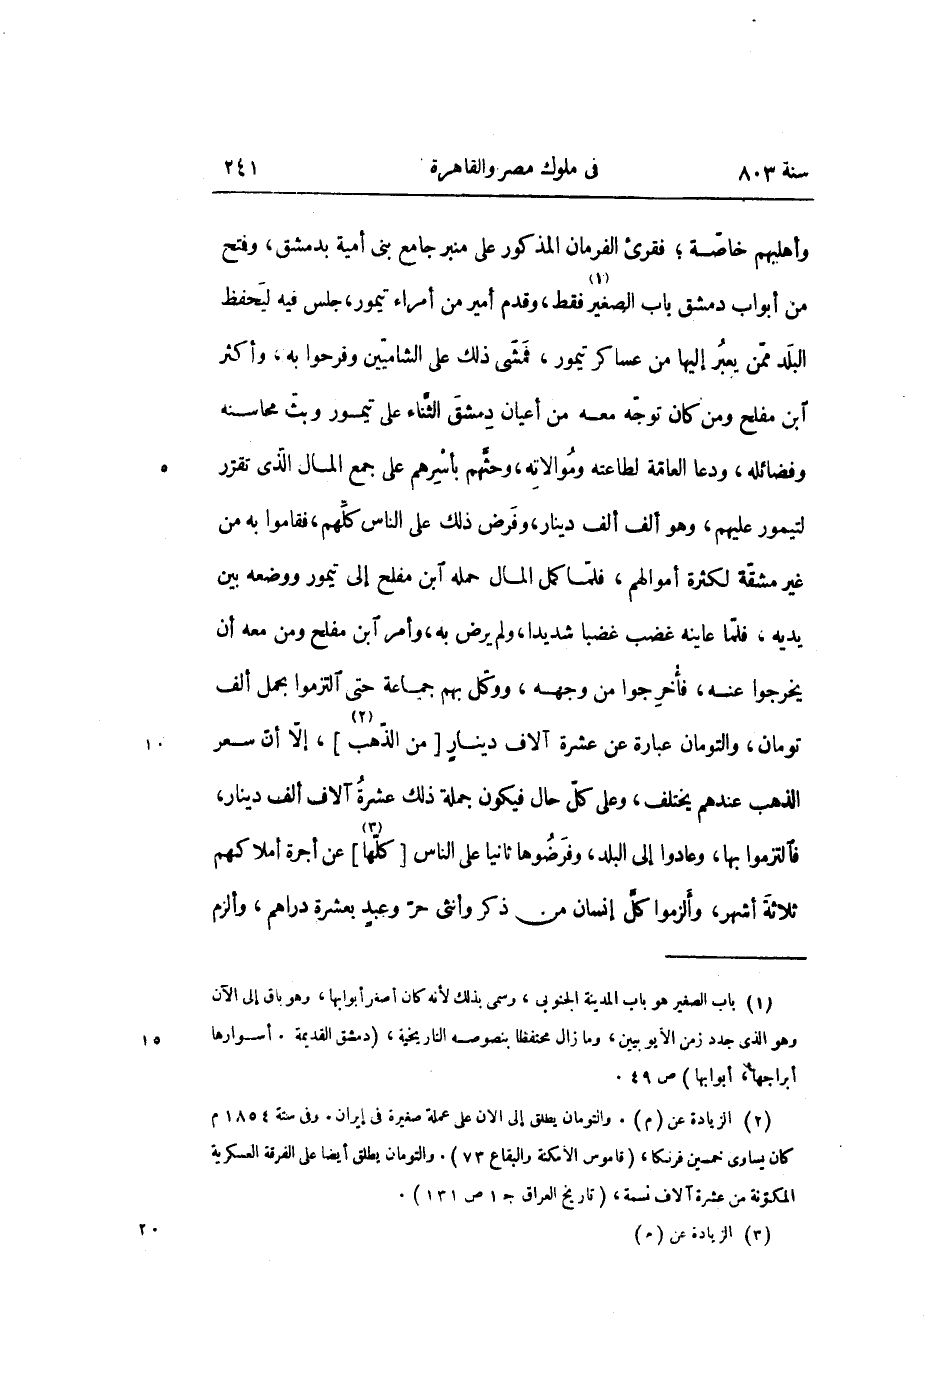 سنة ٨٠٣ فى ملوك مصر والقاهرة ٢٤١
وأهليهم خاصّة ؛ فقرئ الفرمان المذكور على منبر جامع بنى أمية بدمشق ، وفتح
من أبواب دمشق باب الصغير (١) فقط ، وقدم أمير من أمراء تيمور ، جلس فيه ليَحفظ
البلَد ممّن يعبُر إليها من عساكر تيمور ، فمَشّى ذلك على الشاميّين وفرحوا به ، وأكثر
آبن مفلح ومن كان توجّه معه من أعيان دِمشقَ الثّناء على تيمور وبثّ محاسنه
وفضائله ، ودعا العامّة لطاعته ومُوالاتِه ، وحثَّهم بأسْرِهم على جمع المال الّذى تقرّر ٥
لتيمور عليهم ، وهو ألف ألف دينار ، وفَرض ذلك على الناس كلِّهم ، فقاموا به من
غير مشقّة لكثرة أموالهم ، فلمّا كمل المال حمله آبن مفلح إلى تيمور ووضعه بين
يديه ، فلمّا عاينه غضب غضبا شديدا ، ولم يرض به ، وأمر آبن مفلح ومن معه أن
يخرجوا عنه ، فأُخرِجوا من وجهه ، ووكّل بهم جماعة حتى آلتزموا بحمل ألف
تومان ، والتومان عبارة عن عشرة آلاف دينارٍ [ من الذّهب (٢) ] ، إلّا أنّ سعر ١٠
الذهب عندهم يختلف ، وعلى كلّ حال فيكون جملة ذلك عشرةُ آلاف ألف دينار ،
فآلتزموا بها ، وعادوا إلى البلد ، وفرَضُوها ثانيا على الناس [ كلّها (٣) ] عن أجرة أملاكهم
ثلاثةَ أشهر ، وأَلزموا كلَّ إنسان من ذكر وأنثى حرّ وعبدٍ بعشرة دراهم ، وألزم
(١) باب الصغير هو باب المدينة الجنوبى ، وسمى بذلك لأنه كان أصغر أبوابها ، وهو باق إلى الآن
وهو الذى جدد زمن الأيوبيين ، وما زال محتفظا بنصوصه التاريخية ، (دمشق القديمة . أسوارها ١٥
أبراجها ، أبوابها ) ص ٤٩ .
(٢) الزيادة عن (م) . والتومان يطلق إلى الان على عملة صغيرة فى إيران . وفى سنة ١٨٥٤ م
كان يساوى خمسين فرنكا ، ( قاموس الأمكنة والبقاع ٧٣ ) . والتومان يطلق أيضا على الفرقة العسكرية
المكوّنة من عشرة آلاف نسمة ، ( تاريخ العراق ج ١ ص ١٣١ ) .
(٣) الزيادة عن (م) ٢٠